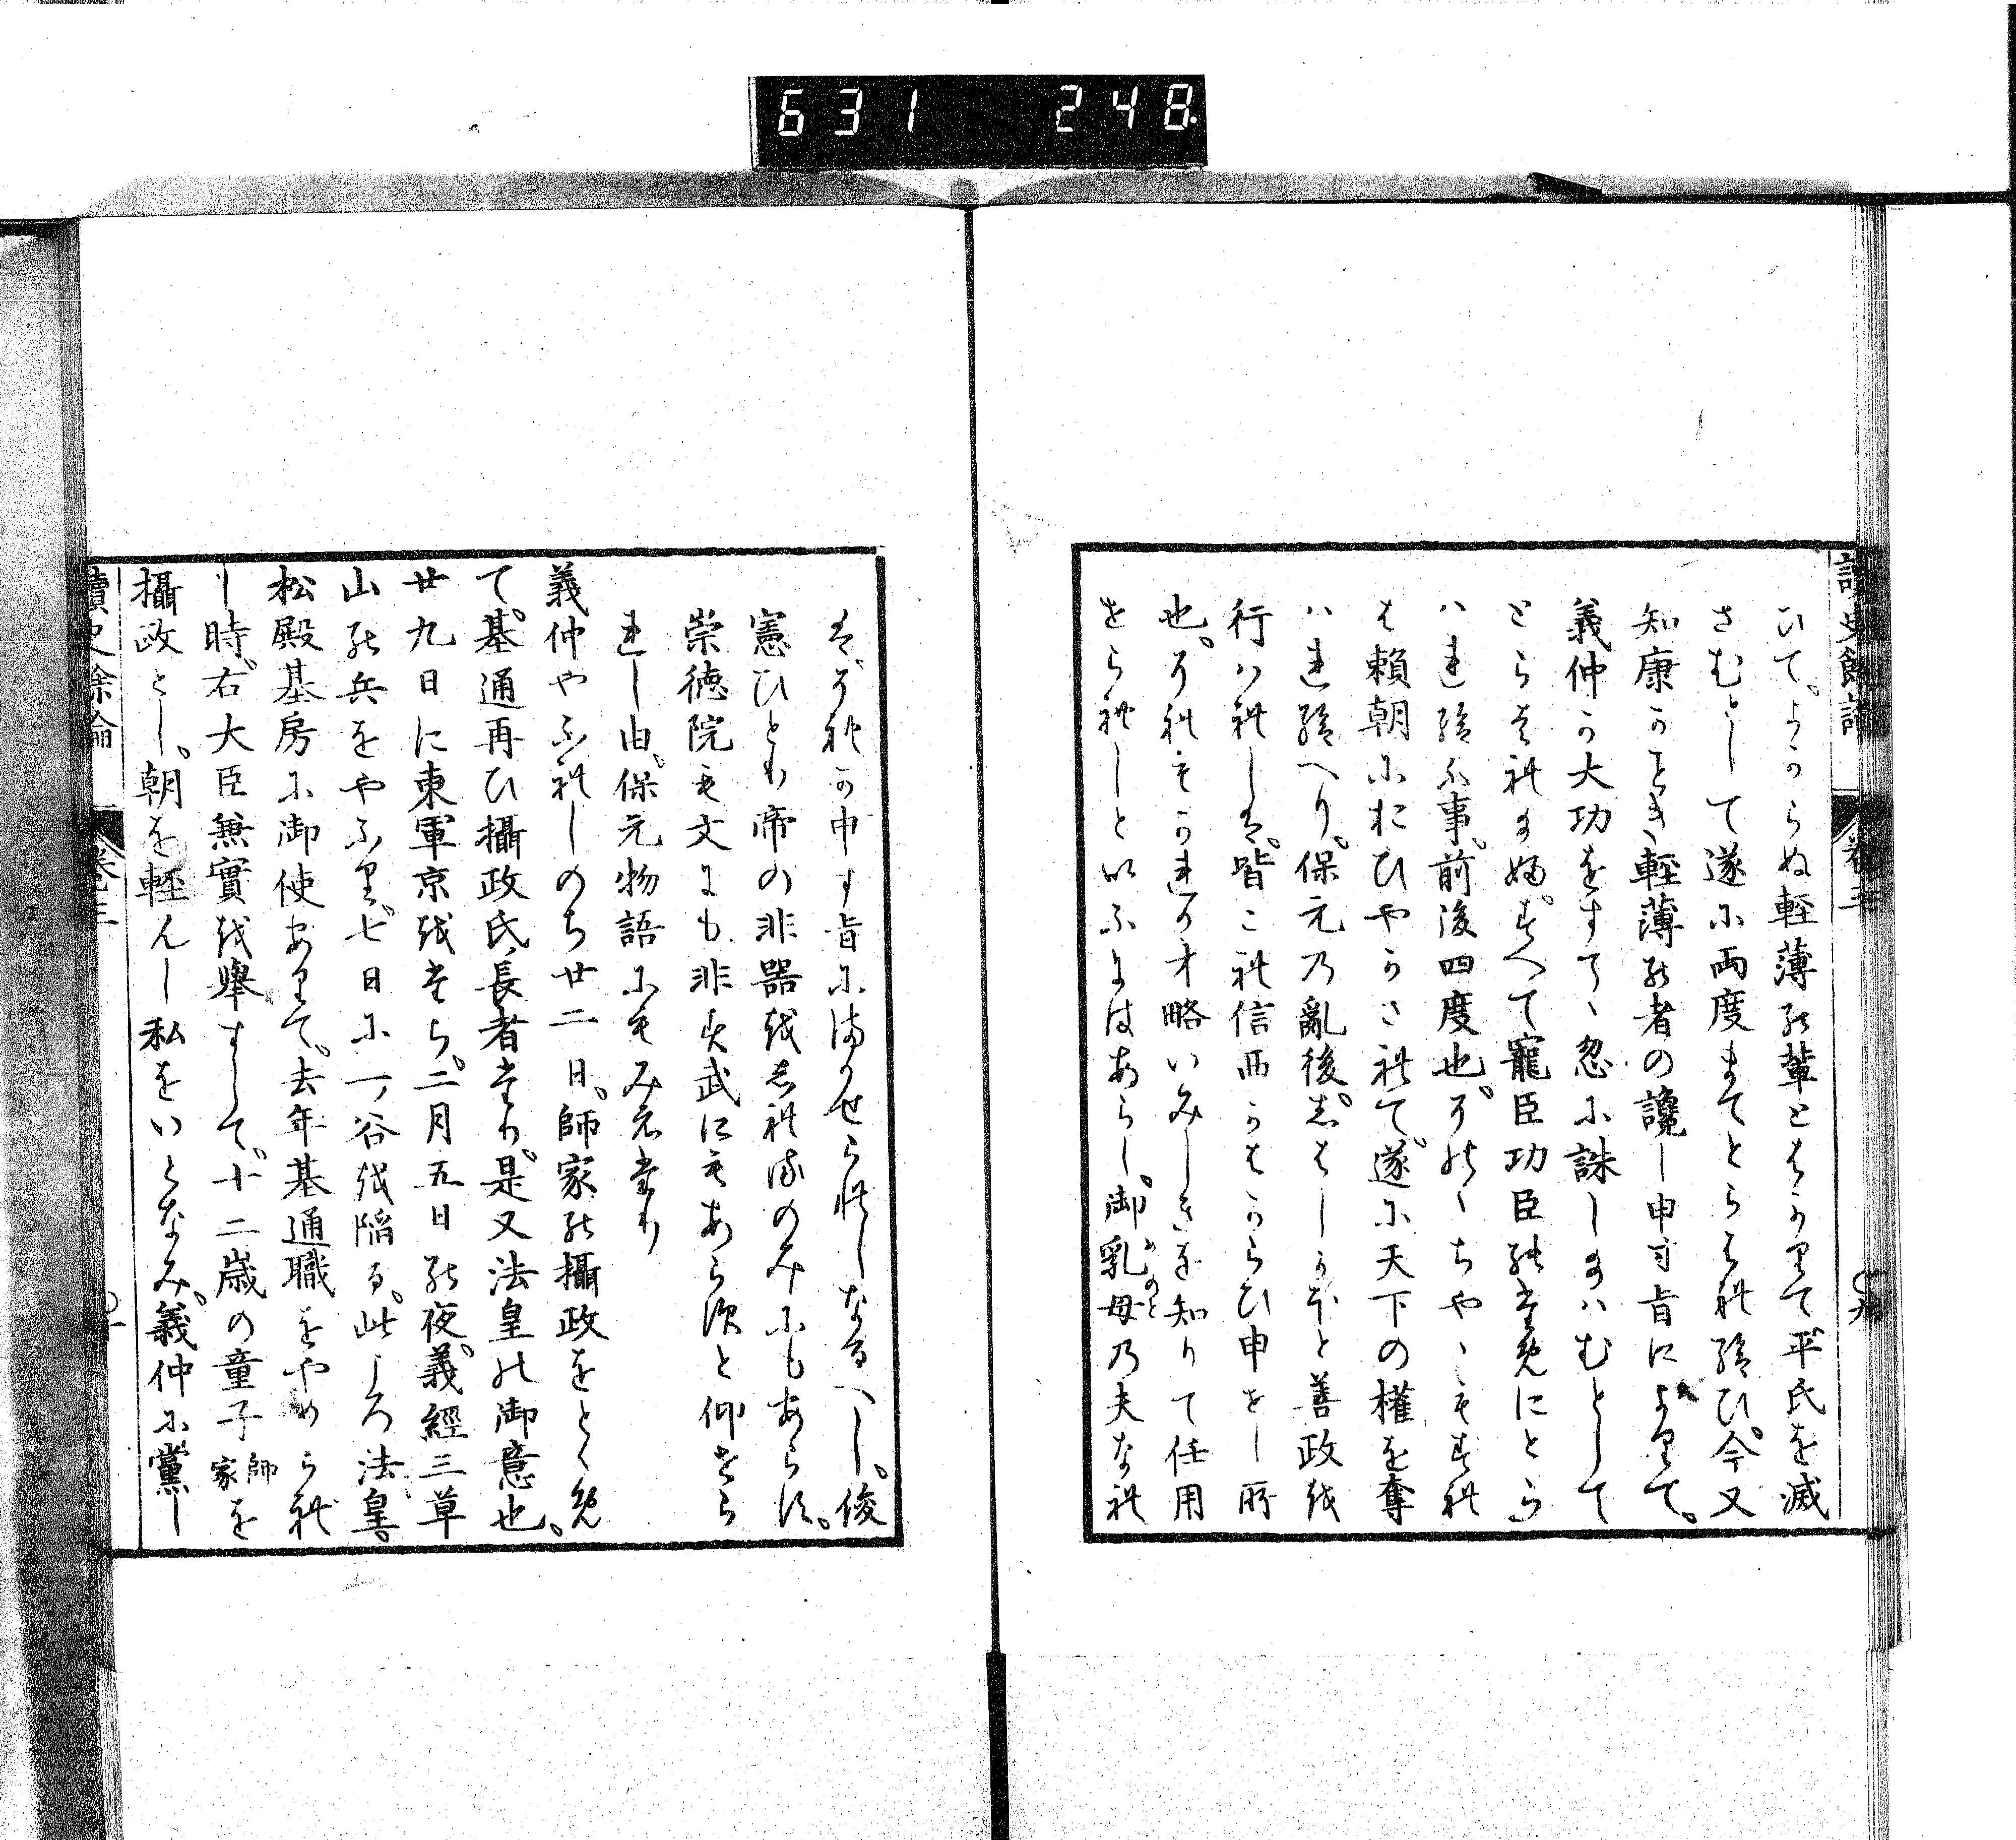 631 248
ひて。よからぬ輕薄の輩とはかりて。平氏を滅
さむとして遂に両度まてとらはれ給ひ。今又
知康かことき輕薄の者の讒し申す旨によりて。
義仲か大功をすてゝ忽に誅し給はむとして
とらはれ給ぬ。すへて寵臣功臣のためにとら
ハれ給ふ事。前後四度也。そのゝちやゝもすれ
は頼朝におひやかされて。遂に天下の權を奪
ハれ給へり。保元乃亂後。しはしかほと善政を
行はれしは。皆これ信西かはからひ申せし所
也。それもかれか才略いみしきを知りて任用
せられしといふにはあらし。御乳母乃夫なれ
めのと
はそれか申す旨にまかせられしなるへし。俊
憲ひとり帝の非器をしれるのみにもあらす。
崇徳院も文にも非す武にもあらすと仰せら
れし由。保元物語にもみえたり
義仲やふれしのち廿二日。師家の攝政をとゝめ
て。基通再ひ攝政氏長者たり。是又法皇の御意也。
廿九日に東軍京をたつ。二月五日の夜。義經三草
山の兵をやふり。七日に一ノ谷を陥る。此ころ法皇。
松殿基房に御使ありて。去年基通職をやめられ
し時。右大臣無實を擧すして。十二歳の童子師家を
攝政とし。朝を輕んし私をいとなみ。義仲に黨し
讀史餘論 卷之三